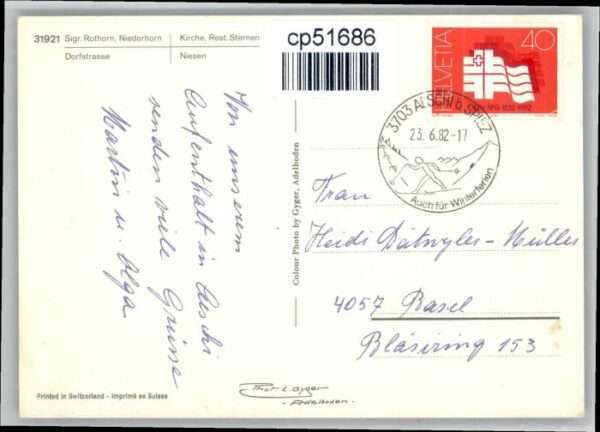 31921 Sigr. Rothorn, Niederhorn Kirche, Rest. Sternen
Dorfstrasse Niesen
cp51686
HELVETIA 40
3703 AESCHI b. SPIEZ
23.6.82-17
Auch für Winterferien
Von unserem
Aufenthalt in Aeschi
senden viele Grüsse
Martin u. Olga
Colour Photo by Gyger, Adelboden
Frau
Heidi Dätwyler-Müller
4057 Basel
Bläsiring 153
Printed in Switzerland - Imprimé en Suisse
Gyger
Adelboden